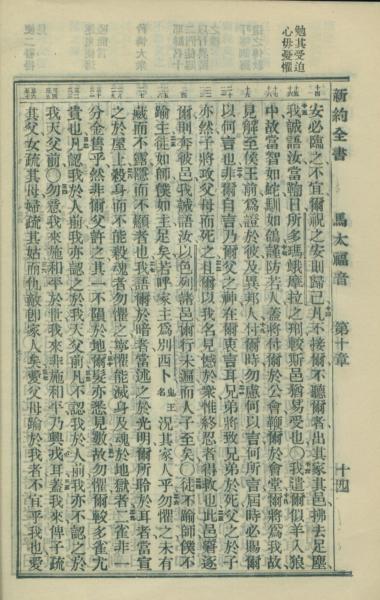 勉其受迫
心毋憂懼
新約全書 馬太福音 第十章 十四
安必臨之不宜爾祝之安則歸己凡不接爾不聽爾者出其家其邑拂去足塵
我誠語汝當鞫日所多瑪蛾摩拉之刑較斯邑猶易受也〇我遣爾似羊入狼
中故當智如蛇馴如鴿謹防若人蓋將付爾於公會鞭爾於會堂爾將爲我故
見解至侯王前爲證於彼及異邦人付爾時勿慮何以言何所言屆時必賜爾
以何言也非爾自言乃爾父之神在爾衷言耳兄弟將致兄弟於死父之於子
亦然子將攻父母而死之且爾以我名見憾於衆惟終忍者得救也此邑窘逐
爾則奔彼邑我誠語汝以色列諸邑爾行未遍而人子至矣〇徒不踰師僕不
踰主徒如師僕如主足矣若呼家主爲別西卜鬼王名況其家人乎勿懼之未有
藏而不露隱而不顯者也我語爾於暗者當述之於光明爾所聆於耳者當宣
之於屋上殺身而不能殺魂者勿懼之寧懼能滅身及魂於地獄者二雀非一
分金售乎然非爾父許之其一不隕於地爾髮亦悉見數故勿懼爾較多雀尤
貴也凡認我於人前我亦認之於我天父前凡不認我於人前我亦不認之於
我天父前〇勿意我來施和平於世我來非施和平乃興戎耳蓋我來俾子疏
其父女疏其母婦疏其姑而仇敵卽家人矣愛父母踰於我者不宜乎我也愛